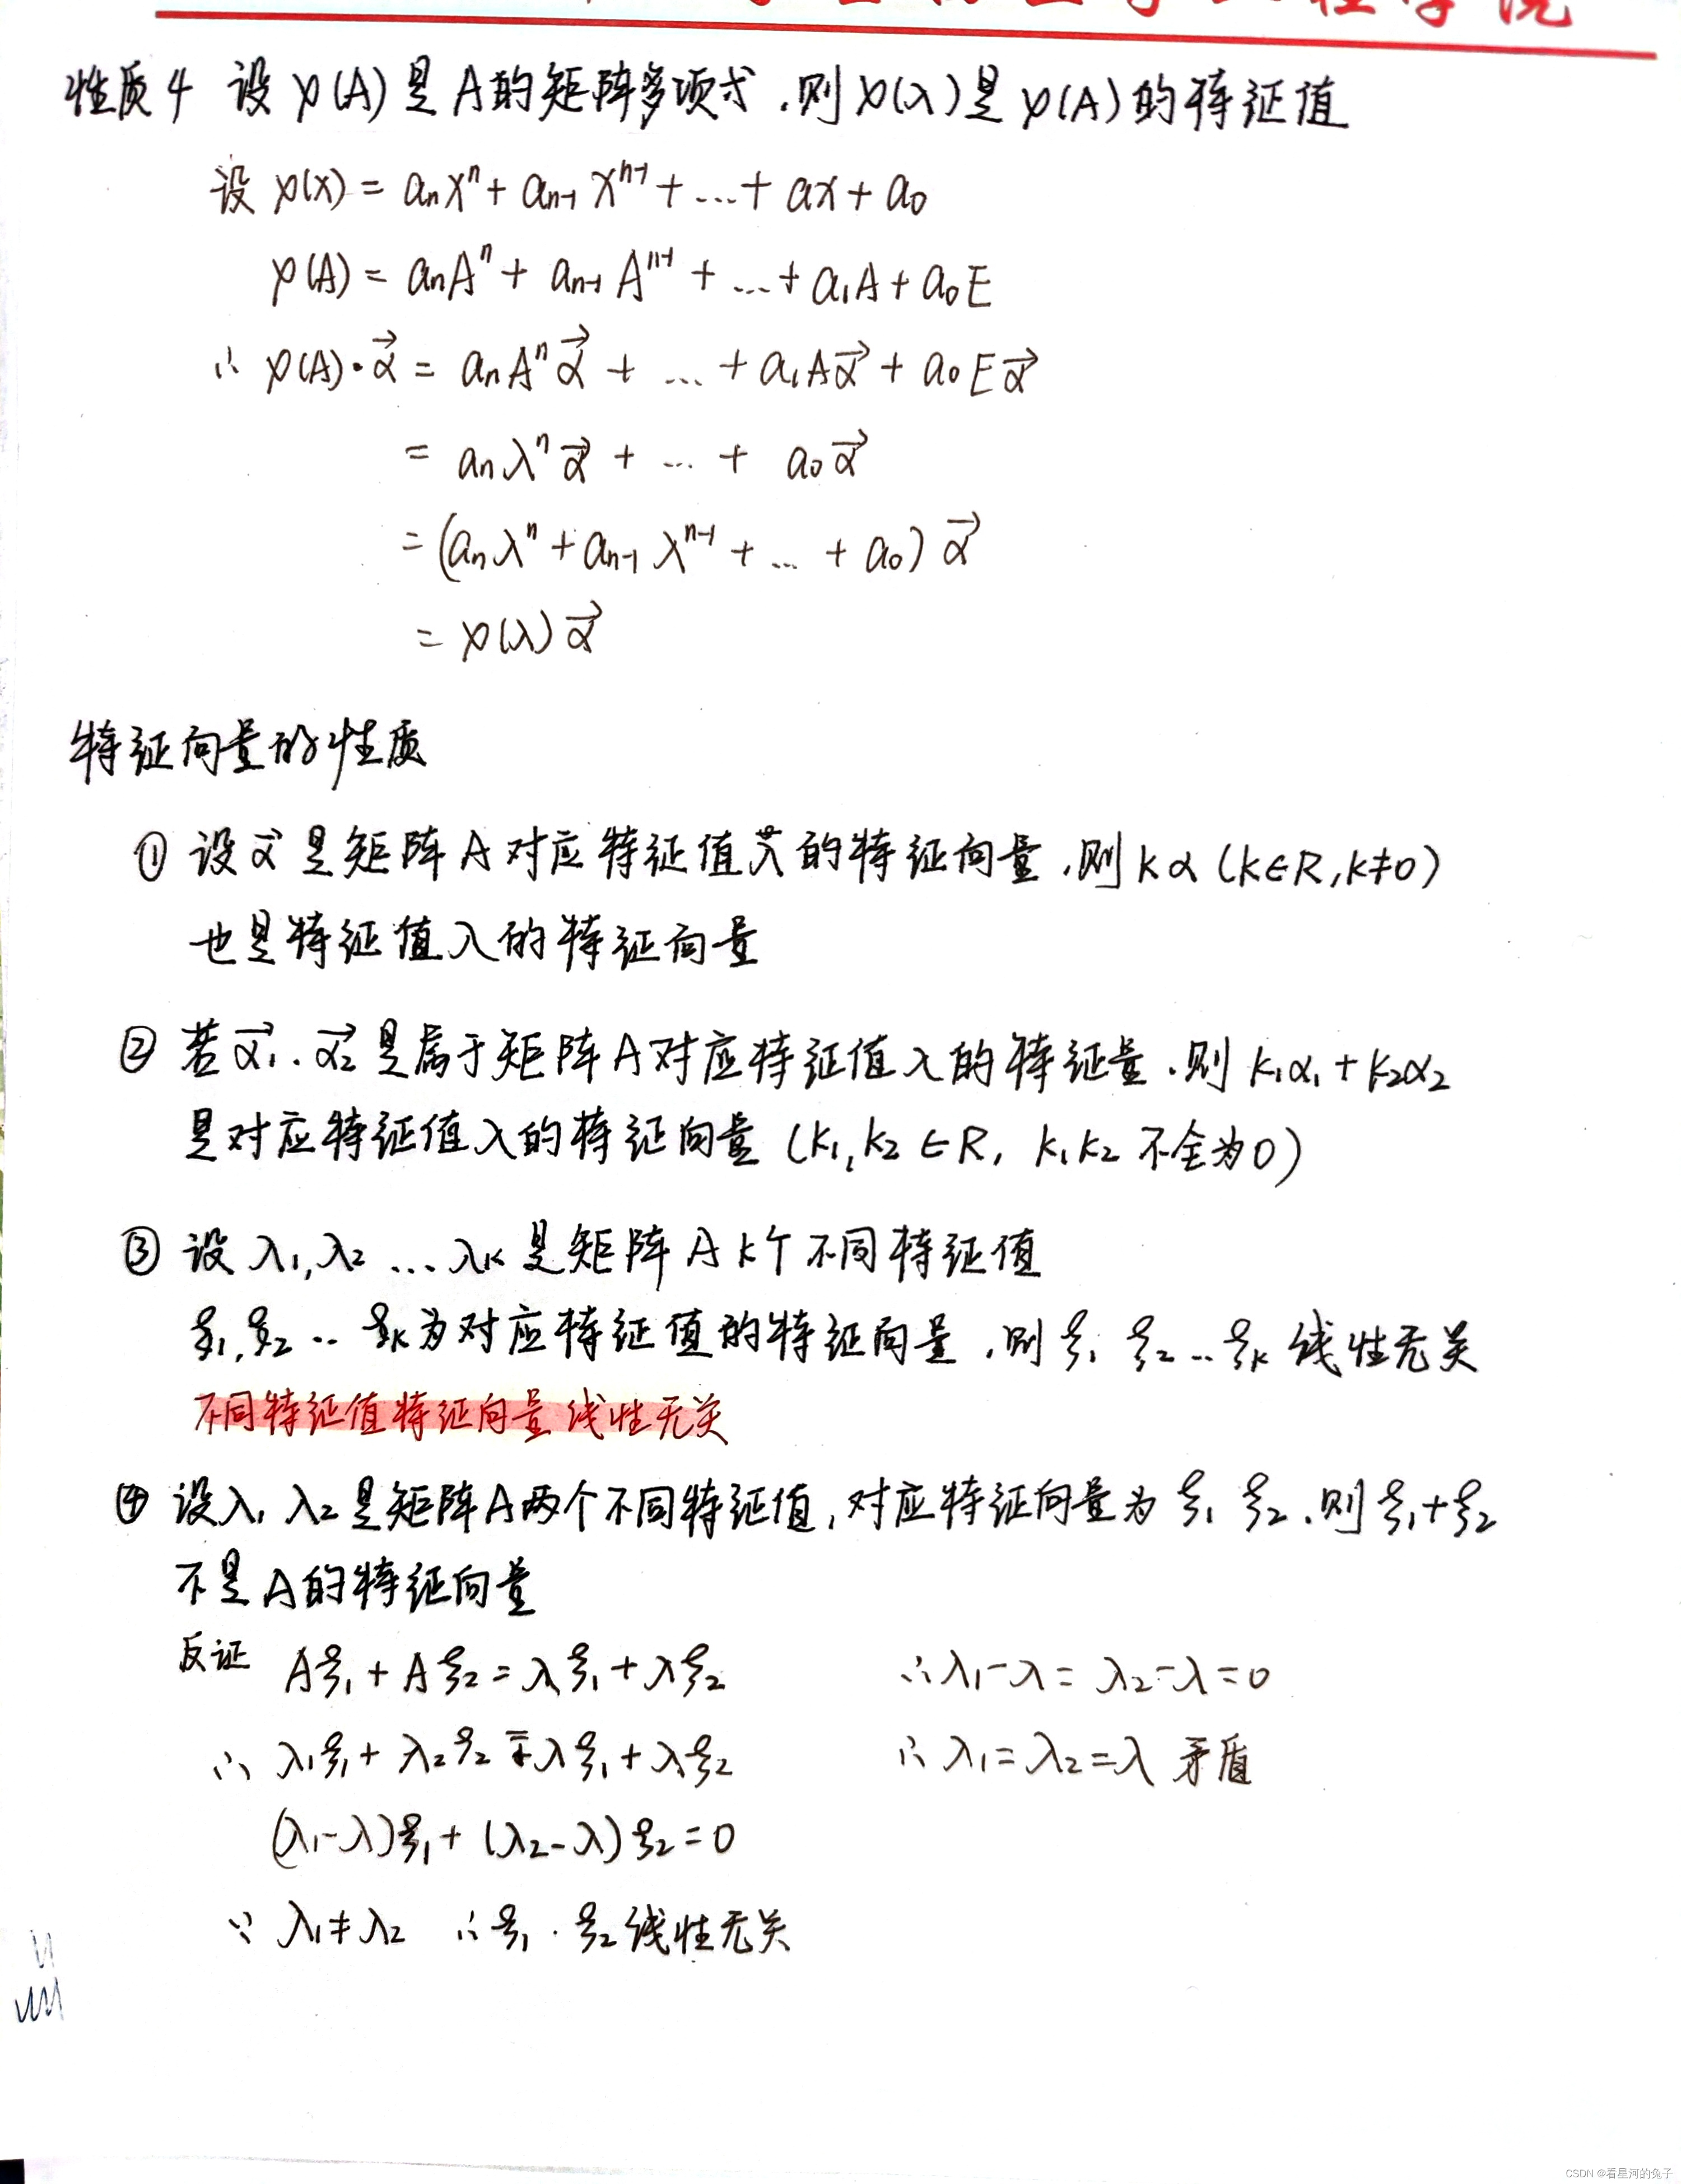 性质4 设φ(A)是A的矩阵多项式.则φ(λ)是φ(A)的特征值
设 φ(x) = aₙxⁿ + aₙ₋₁xⁿ⁻¹ + ... + ax + a₀
φ(A) = aₙAⁿ + aₙ₋₁Aⁿ⁻¹ + ... + a₁A + a₀E
∴ φ(A)·α⃗ = aₙAⁿα⃗ + ... + a₁Aα⃗ + a₀Eα⃗
= aₙλⁿα⃗ + ... + a₀α⃗
= (aₙλⁿ + aₙ₋₁λⁿ⁻¹ + ... + a₀)α⃗
= φ(λ)α⃗
特征向量的性质
① 设α⃗是矩阵A对应特征值λ的特征向量.则kα (k∈R,k≠0)
也是特征值λ的特征向量
② 若α⃗₁.α⃗₂是属于矩阵A对应特征值λ的特征量.则k₁α₁+k₂α₂
是对应特征值λ的特征向量 (k₁,k₂∈R, k₁k₂不全为0)
③ 设λ₁,λ₂...λₖ是矩阵A k个不同特征值
ξ₁,ξ₂..ξₖ为对应特征值的特征向量.则ξ₁ ξ₂..ξₖ线性无关
不同特征值特征向量线性无关
④ 设λ₁ λ₂是矩阵A两个不同特征值,对应特征向量为ξ₁ ξ₂.则ξ₁+ξ₂
不是A的特征向量
反证 Aξ₁+Aξ₂=λξ₁+λξ₂ ∴λ₁-λ=λ₂-λ=0
∴ λ₁ξ₁+λ₂ξ₂=λξ₁+λξ₂ ∴λ₁=λ₂=λ 矛盾
(λ₁-λ)ξ₁+(λ₂-λ)ξ₂=0
∵ λ₁≠λ₂ ∴ξ₁.ξ₂线性无关
CSDN @看星河的兔子